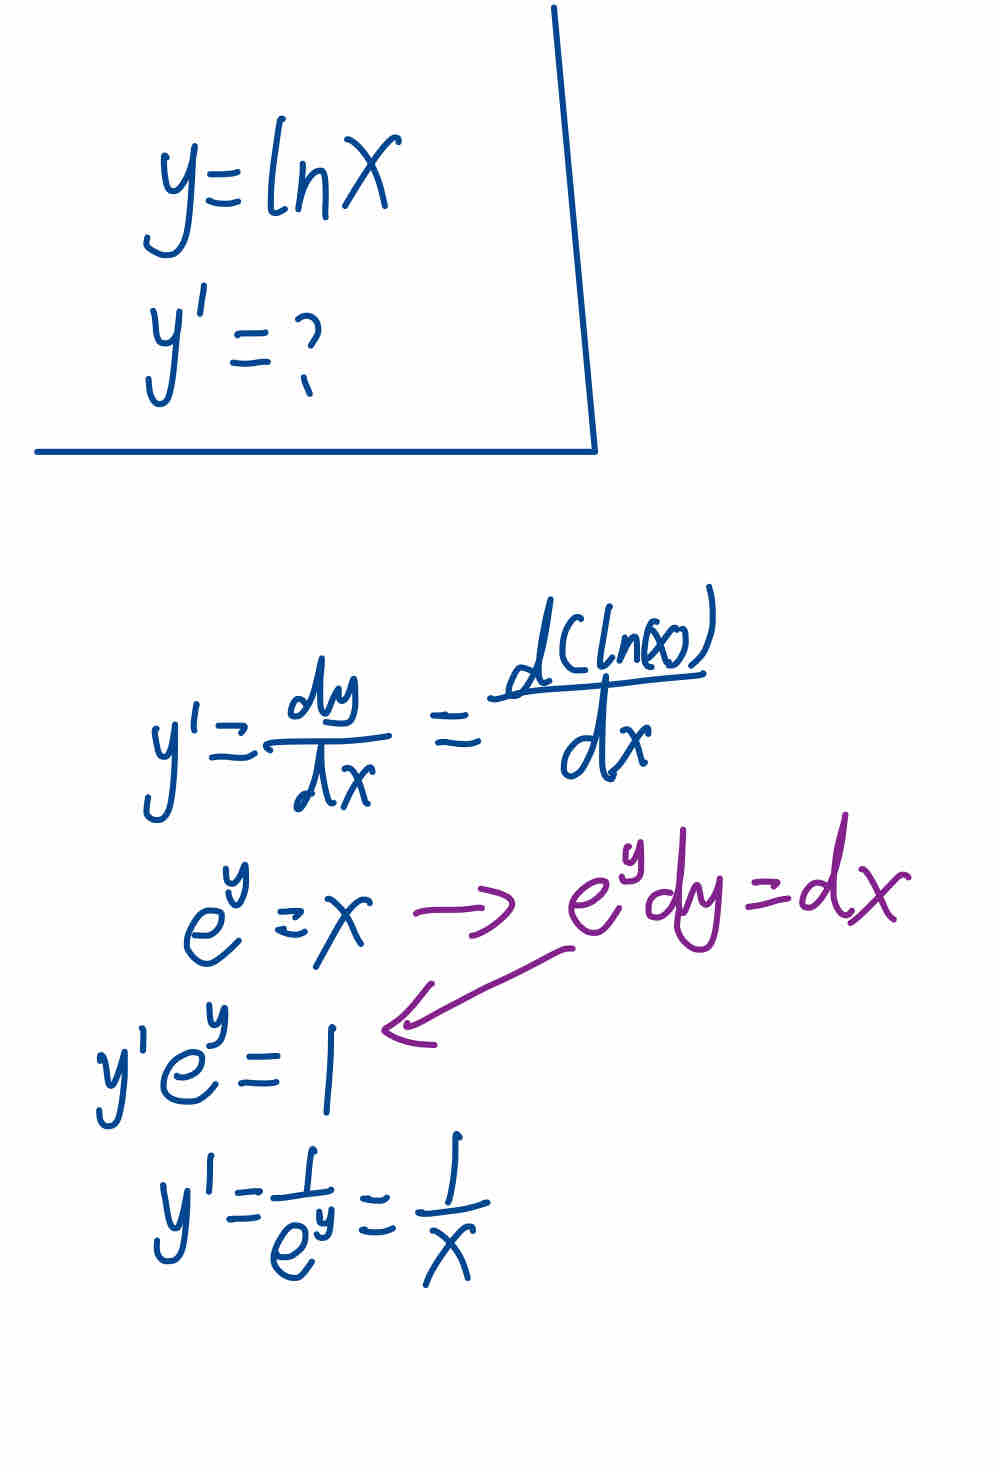 y = ln x
y' = ?
y' = dy/dx = d(ln(x))/dx
e^y = x → e^y dy = dx
y' e^y = 1
y' = 1/e^y = 1/x